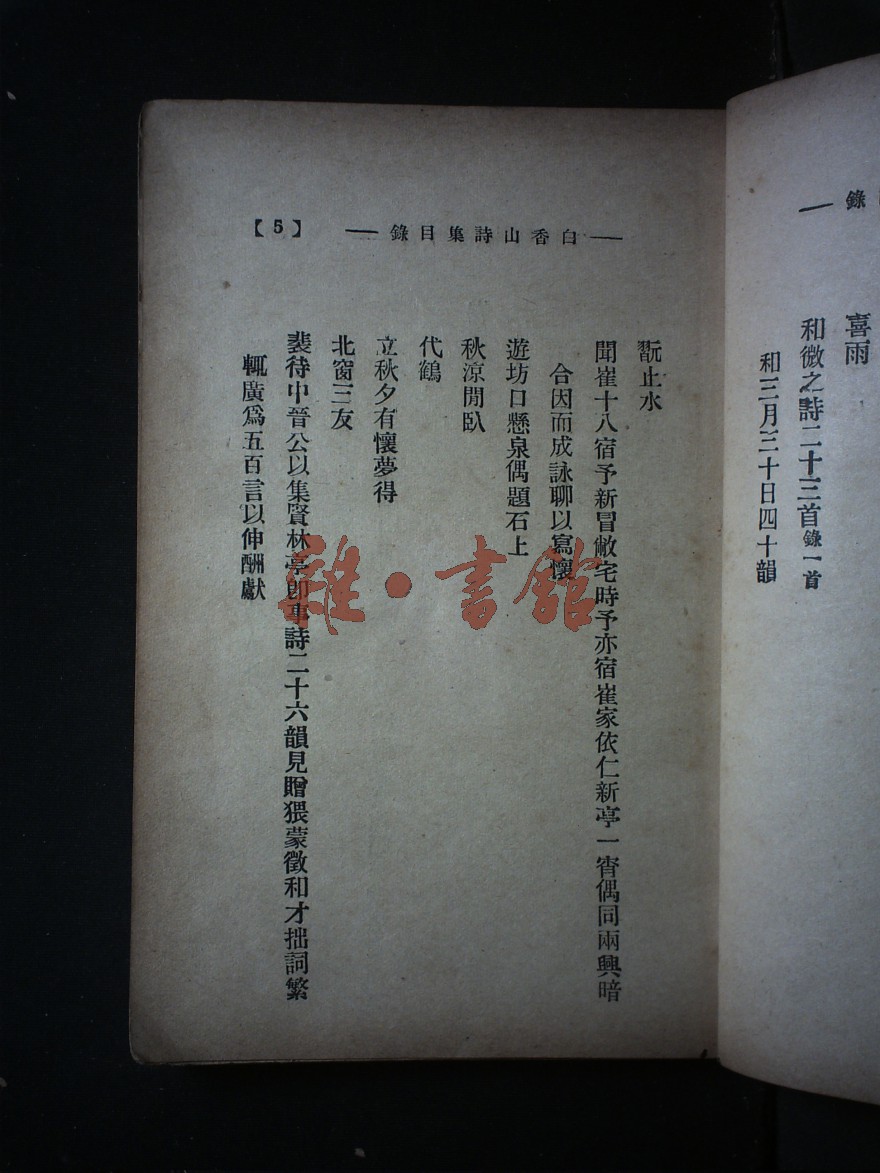 錄 —
喜雨
和微之詩二十三首錄一首
和三月三十日四十韻
— 白香山詩集目錄 —
【5】
翫止水
聞崔十八宿予新冒敝宅時予亦宿崔家依仁新亭一宵偶同兩興暗
合因而成詠聊以寫懷
遊坊口懸泉偶題石上
秋涼閒臥
代鶴
立秋夕有懷夢得
北窗三友
裴待中晉公以集賢林亭即事詩二十六韻見贈猥蒙徵和才拙詞繁
輒廣爲五百言以伸酬獻
雜·書館